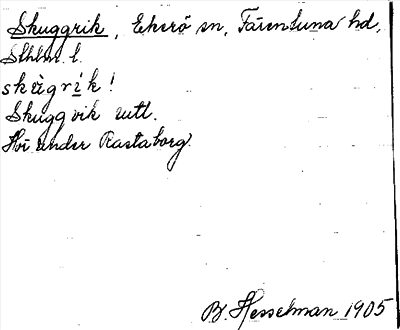 Skuggrik, Ekerö sn, Färentuna hd,
Sthlm l.
skùgrík!
Skuggvik uttl.
Hör under Rastaborg.
B. Hesselman 1905